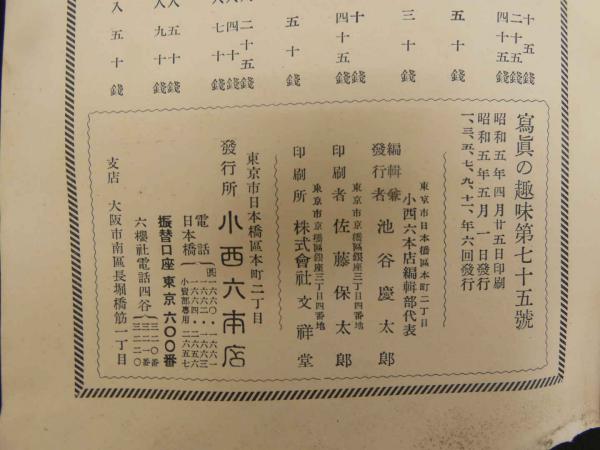 十五錢
二十五錢
四十五錢
五十錢
三十錢
十錢
四十五錢
五十錢
二十五錢
四十錢
八七十錢
八五十錢
八九十錢
八五十錢
寫眞の趣味第七十五號
昭和五年四月廿五日印刷
昭和五年五月一日發行
一、三、五、七、九、十一、年六回發行
東京市日本橋區本町二丁目
小西六本店編輯部代表
編輯兼發行者 池谷慶太郎
東京市京橋區銀座三丁目四番地
印刷者 佐藤保太郎
東京市京橋區銀座三丁目四番地
印刷所 株式會社文祥堂
東京市日本橋區本町二丁目
發行所 小西六本店
電話日本橋
小賣部專用 二六五七
振替口座東京六〇〇番
六櫻社電話四谷
支店 大阪市南區長堀橋筋一丁目